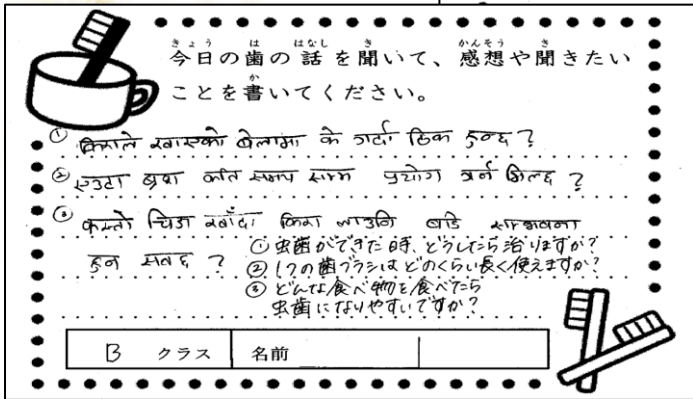 今日の歯の話を聞いて、感想や聞きたい
ことを書いてください。
① किराले खाएको बेलामा के गर्दा ठिक हुन्छ ?
② एउटा ब्रश कति समय सम्म प्रयोग गर्न मिल्छ ?
③ कस्तो चिज खाँदा किरा लाग्ने बढि सम्भावना
हुन सक्छ ?
① 虫歯ができた時、どうしたら治りますか?
② 1つの歯ブラシはどのくらい長く使えますか?
③ どんな食べ物を食べたら
虫歯になりやすいですか?
B クラス 名前